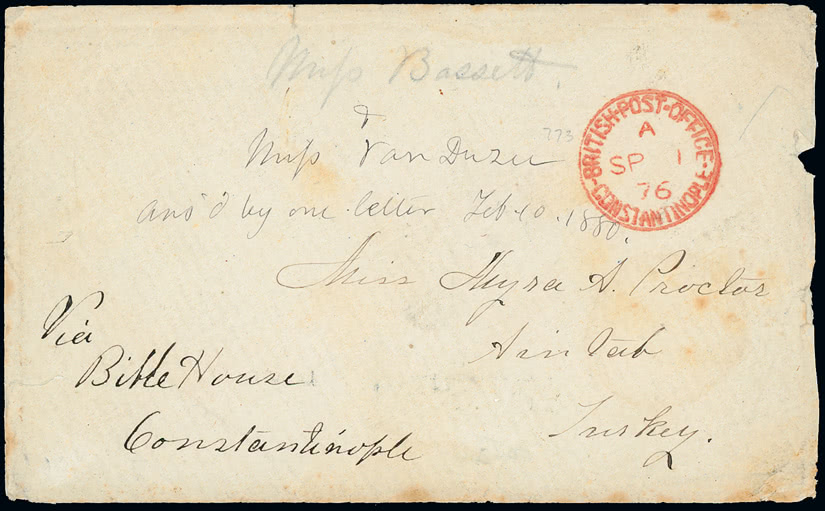 Miss Bassett.
&
Miss Van Duzee
ans'd by one letter Feb 10. 1880.
773
BRITISH-POST-OFFICE
A
SP 1
76
CONSTANTINOPLE
Miss Myra A. Proctor
Aintab
Turkey.
Via
Bible House
Constantinople